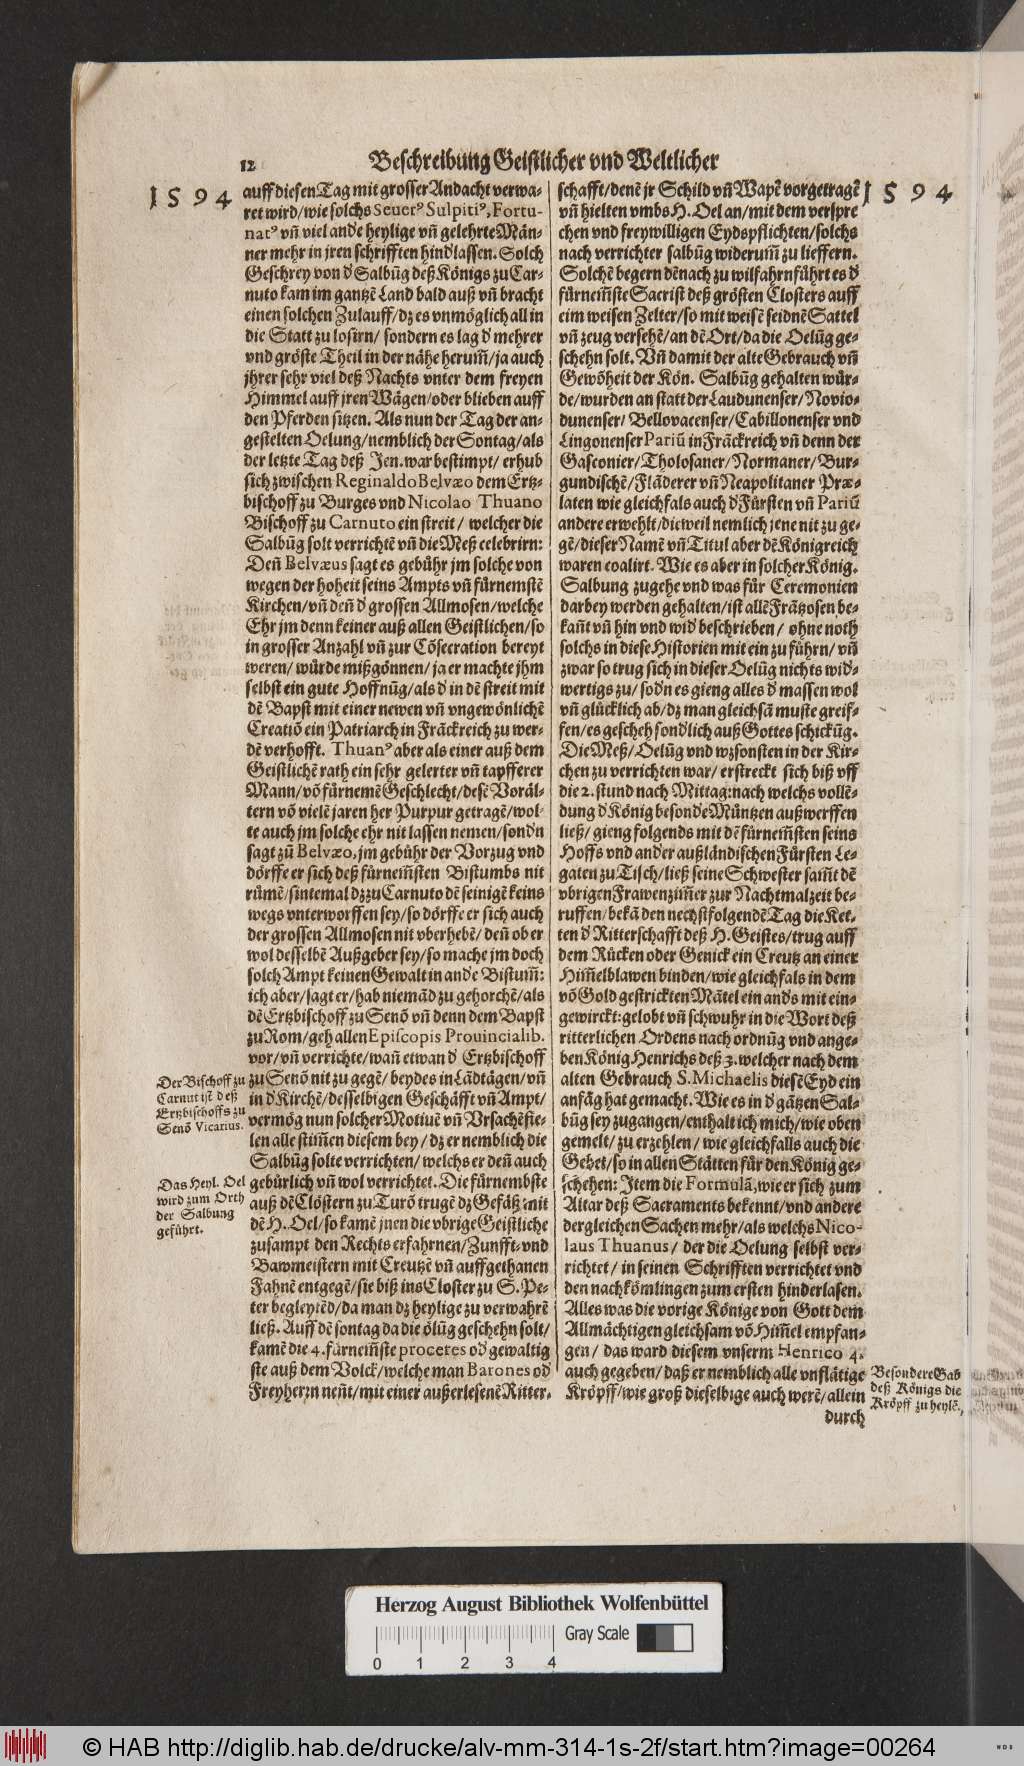 12
Beschreibung Geistlicher vnd Weltlicher
1594
1594
auff diesen Tag mit grosser Andacht verwa-
ret wird/wie solchs Seuerꝰ Sulpitiꝰ, Fortu-
natꝰ vñ viel ande heylige vñ gelehrte Män-
ner mehr in jren schrifften hind̕lassen. Solch
Geschrey von d̕ Salbũg deß Königs zu Car-
nuto kam im gantzẽ Land bald auß vñ bracht
einen solchen Zulauff/dz es vnmöglich all in
die Statt zu losirn/ sondern es lag d̕ mehrer
vnd gröste Theil in der nähe herum̃/ja auch
jhrer sehr viel deß Nachts vnter dem freyen
Himmel auff jren Wägen/oder blieben auff
den Pferden sitzen. Als nun der Tag der an-
gestelten Oelung/nemblich der Sontag/als
der letzte Tag deß Jen. war bestimpt/ erhub
sich zwischen Reginaldo Belvæo dem Ertz-
bischoff zu Burges vnd Nicolao Thuano
Bischoff zu Carnuto ein streit/ welcher die
Salbũg solt verrichtẽ vñ die Meß celebrirn:
Deñ Belvæus sagt es gebühr jm solche von
wegen der hoheit seins Ampts vñ fürnemstẽ
Kirchen/vñ deñ d̕ grossen Allmosen/welche
Ehr jm denn keiner auß allen Geistlichen/so
in grosser Anzahl vñ zur Cõsecration bereyt
weren/ würde mißgönnen/ ja er machte jhm
selbst ein gute Hoffnũg/als d̕ in dẽ streit mit
dẽ Bapst mit einer newen vñ vngewönlichẽ
Creatiõ ein Patriarch in Frãckreich zu wer-
dẽ verhofft. Thuanꝰ aber als einer auß dem
Geistlichẽ rath ein sehr gelerter vñ tapfferer
Mann/võ fürnemẽ Geschlecht/desẽ Voräl-
tern võ vielẽ jaren her Purpur getragẽ/wol-
te auch jm solche ehr nit lassen nemen/sond̕n
sagt zũ Belvæo, jm gebühr der Vorzug vnd
dörffe er sich deß fürnem̃sten Bistumbs nit
rümẽ/sintemal dz zu Carnuto dẽ seinigẽ keins
wegs vnterworffen sey/so dörffe er sich auch
der grossen Allmosen nit vberhebẽ/ deñ ob er
wol desselbẽ Außgeber sey/so mache jm doch
solch Ampt keinen Gewalt in ande Bistum̃:
ich aber/sagt er/hab niemãd zu gehorchẽ/als
dẽ Ertzbischoff zu Senõ vñ denn dem Bapst
zu Rom/geh allen Episcopis Prouincialib.
vor/vñ verrichte/wañ etwan d̕ Ertzbischoff
zu Senõ nit zu gegẽ/ beydes in Lãdtägen/vñ
in d̕ Kirchẽ/desselbigen Geschäfft vñ Ampt/
vermög nun solcher Motiuẽ vñ Vrsachẽ fie-
len alle stim̃en diesem bey/ dz er nemblich die
Salbũg solte verrichten/ welchs er deñ auch
gebürlich vñ wol verrichtet. Die fürnembste
auß dẽ Clöstern zu Turõ trugẽ dz Gefäß mit
dẽ H. Oel/so kamẽ jnen die vbrige Geistliche
zusampt den Rechts erfahrnen/Zunfft-vnd
Bawmeistern mit Creutzẽ vñ auffgethanen
Fahnẽ entgegẽ/sie biß ins Closter zu S. Pe-
ter begleytẽd/da man dz heylige zu verwahrẽ
ließ. Auff dẽ sontag da die ölũg geschehn solt/
kamẽ die 4. fürnem̃ste proceres od̕ gewaltig
ste auß dem Volck/welche man Barones od̕
Freyherꝛn neñt/mit einer außerlesenẽ Ritter-
Der Bischoff zu
Carnut ist deß
Ertzbischoffs zu
Senõ Vicarius.
Das Heyl. Oel
wird zum Orth
der Salbung
geführt.
schafft/denẽ jr Schild vñ Wapẽ vorgetragẽ
vñ hielten vmbs H. Oel an/mit dem verspre
chen vnd freywilligen Eydspflichten/solchs
nach verrichter salbũg widerum̃ zu lieffern.
Solchẽ begern dẽnach zu wilfahrn führt es d̕
fürnem̃ste Sacrist deß grösten Closters auff
eim weisen Zelter/so mit weisẽ seidnẽ Sattel
vñ zeug versehẽ/an dẽ Ort/da die Oelũg ge-
schehn solt. Vñ damit der alte Gebrauch vñ
Gewõheit der Kön. Salbũg gehalten wür-
de/wurden an statt der Laudunenser/Novio-
dunenser/ Bellovacenser/Cabillonenser vnd
Lingonenser Pariũ in Frãckreich vñ denn der
Gasconier/Tholosaner/Normaner/Bur-
gundischẽ/Flãderer vñ Neapolitaner Præ-
laten wie gleichfals auch d̕ Fürsten vñ Pariũ
andere erwehlt/dieweil nemlich jene nit zu ge-
gẽ/dieser Namẽ vñ Titul aber dẽ Königreich
waren coalirt. Wie es aber in solcher König.
Salbung zugehe vnd was für Ceremonien
darbey werden gehalten/ist allẽ Frãtzosen be-
kañt vñ hin vnd wid̕ beschrieben/ ohne noth
solchs in diese Historien mit ein zu führn/ vñ
zwar so trug sich in dieser Oelũg nichts wid-
wertigs zu/ sod̕n es gieng alles d̕ massen wol
vñ glücklich ab/dz man gleichsã muste greif-
fen/es gescheh sondlich auß Gottes schickũg.
Die Meß/Oelũg vnd wz sonsten in der Kir-
chen zu verrichten war/ erstreckt sich biß vff
die 2. stund nach Mittag: nach welchs vollẽ-
dung d̕ König besonde Müntzen außwerffen
ließ/ gieng folgends mit dẽ fürnem̃sten seins
Hoffs vnd ander außländischen Fürsten Le-
gaten zu Tisch/ließ seine Schwester sam̃t dẽ
vbrigen Frawenzim̃er zur Nachtmalzeit be-
ruffen/bekã den nechstfolgendẽ Tag die Ket-
ten d̕ Ritterschafft deß H. Geistes/trug auff
dem Rücken oder Genick ein Creutz an einer
Him̃elblawen binden/wie gleichfals in dem
võ Gold gestrickten Mãtel ein and̕s mit ein-
gewirckt: gelobt vñ schwuhr in die Wort deß
ritterlichen Ordens nach ordnũg vnd ange-
ben König Henrichs deß 3. welcher nach dem
alten Gebrauch S. Michaelis diesẽ Eyd ein
anfãg hat gemacht. Wie es in d̕ gãtzen Sal-
bũg sey zugangen/enthalt ich mich/wie oben
gemelt/ zu erzehlen/ wie gleichfalls auch die
Gebet/so in allen Stätten für den König ge-
schehen: Item die Formulã, wie er sich zum
Altar deß Sacraments bekennt/vnd andere
dergleichen Sachen mehr/als welchs Nico-
laus Thuanus/ der die Oelung selbst ver-
richtet/ in seinen Schrifften verrichtet vnd
den nachkömlingen zum ersten hinderlasen.
Alles was die vorige Könige von Gott dem
Allmächtigen gleichsam võ Him̃el empfan-
gen/ das ward diesem vnserm Henrico 4.
auch gegeben/ daß er nemblich alle vnflätige
Kröpff/wie groß dieselbige auch werẽ/allein
durch
Besondere Gab
deß Königs die
Kröpff zu heylẽ.
Herzog August Bibliothek Wolfenbüttel
0 1 2 3 4
Gray Scale
© HAB http://diglib.hab.de/drucke/alv-mm-314-1s-2f/start.htm?image=00264